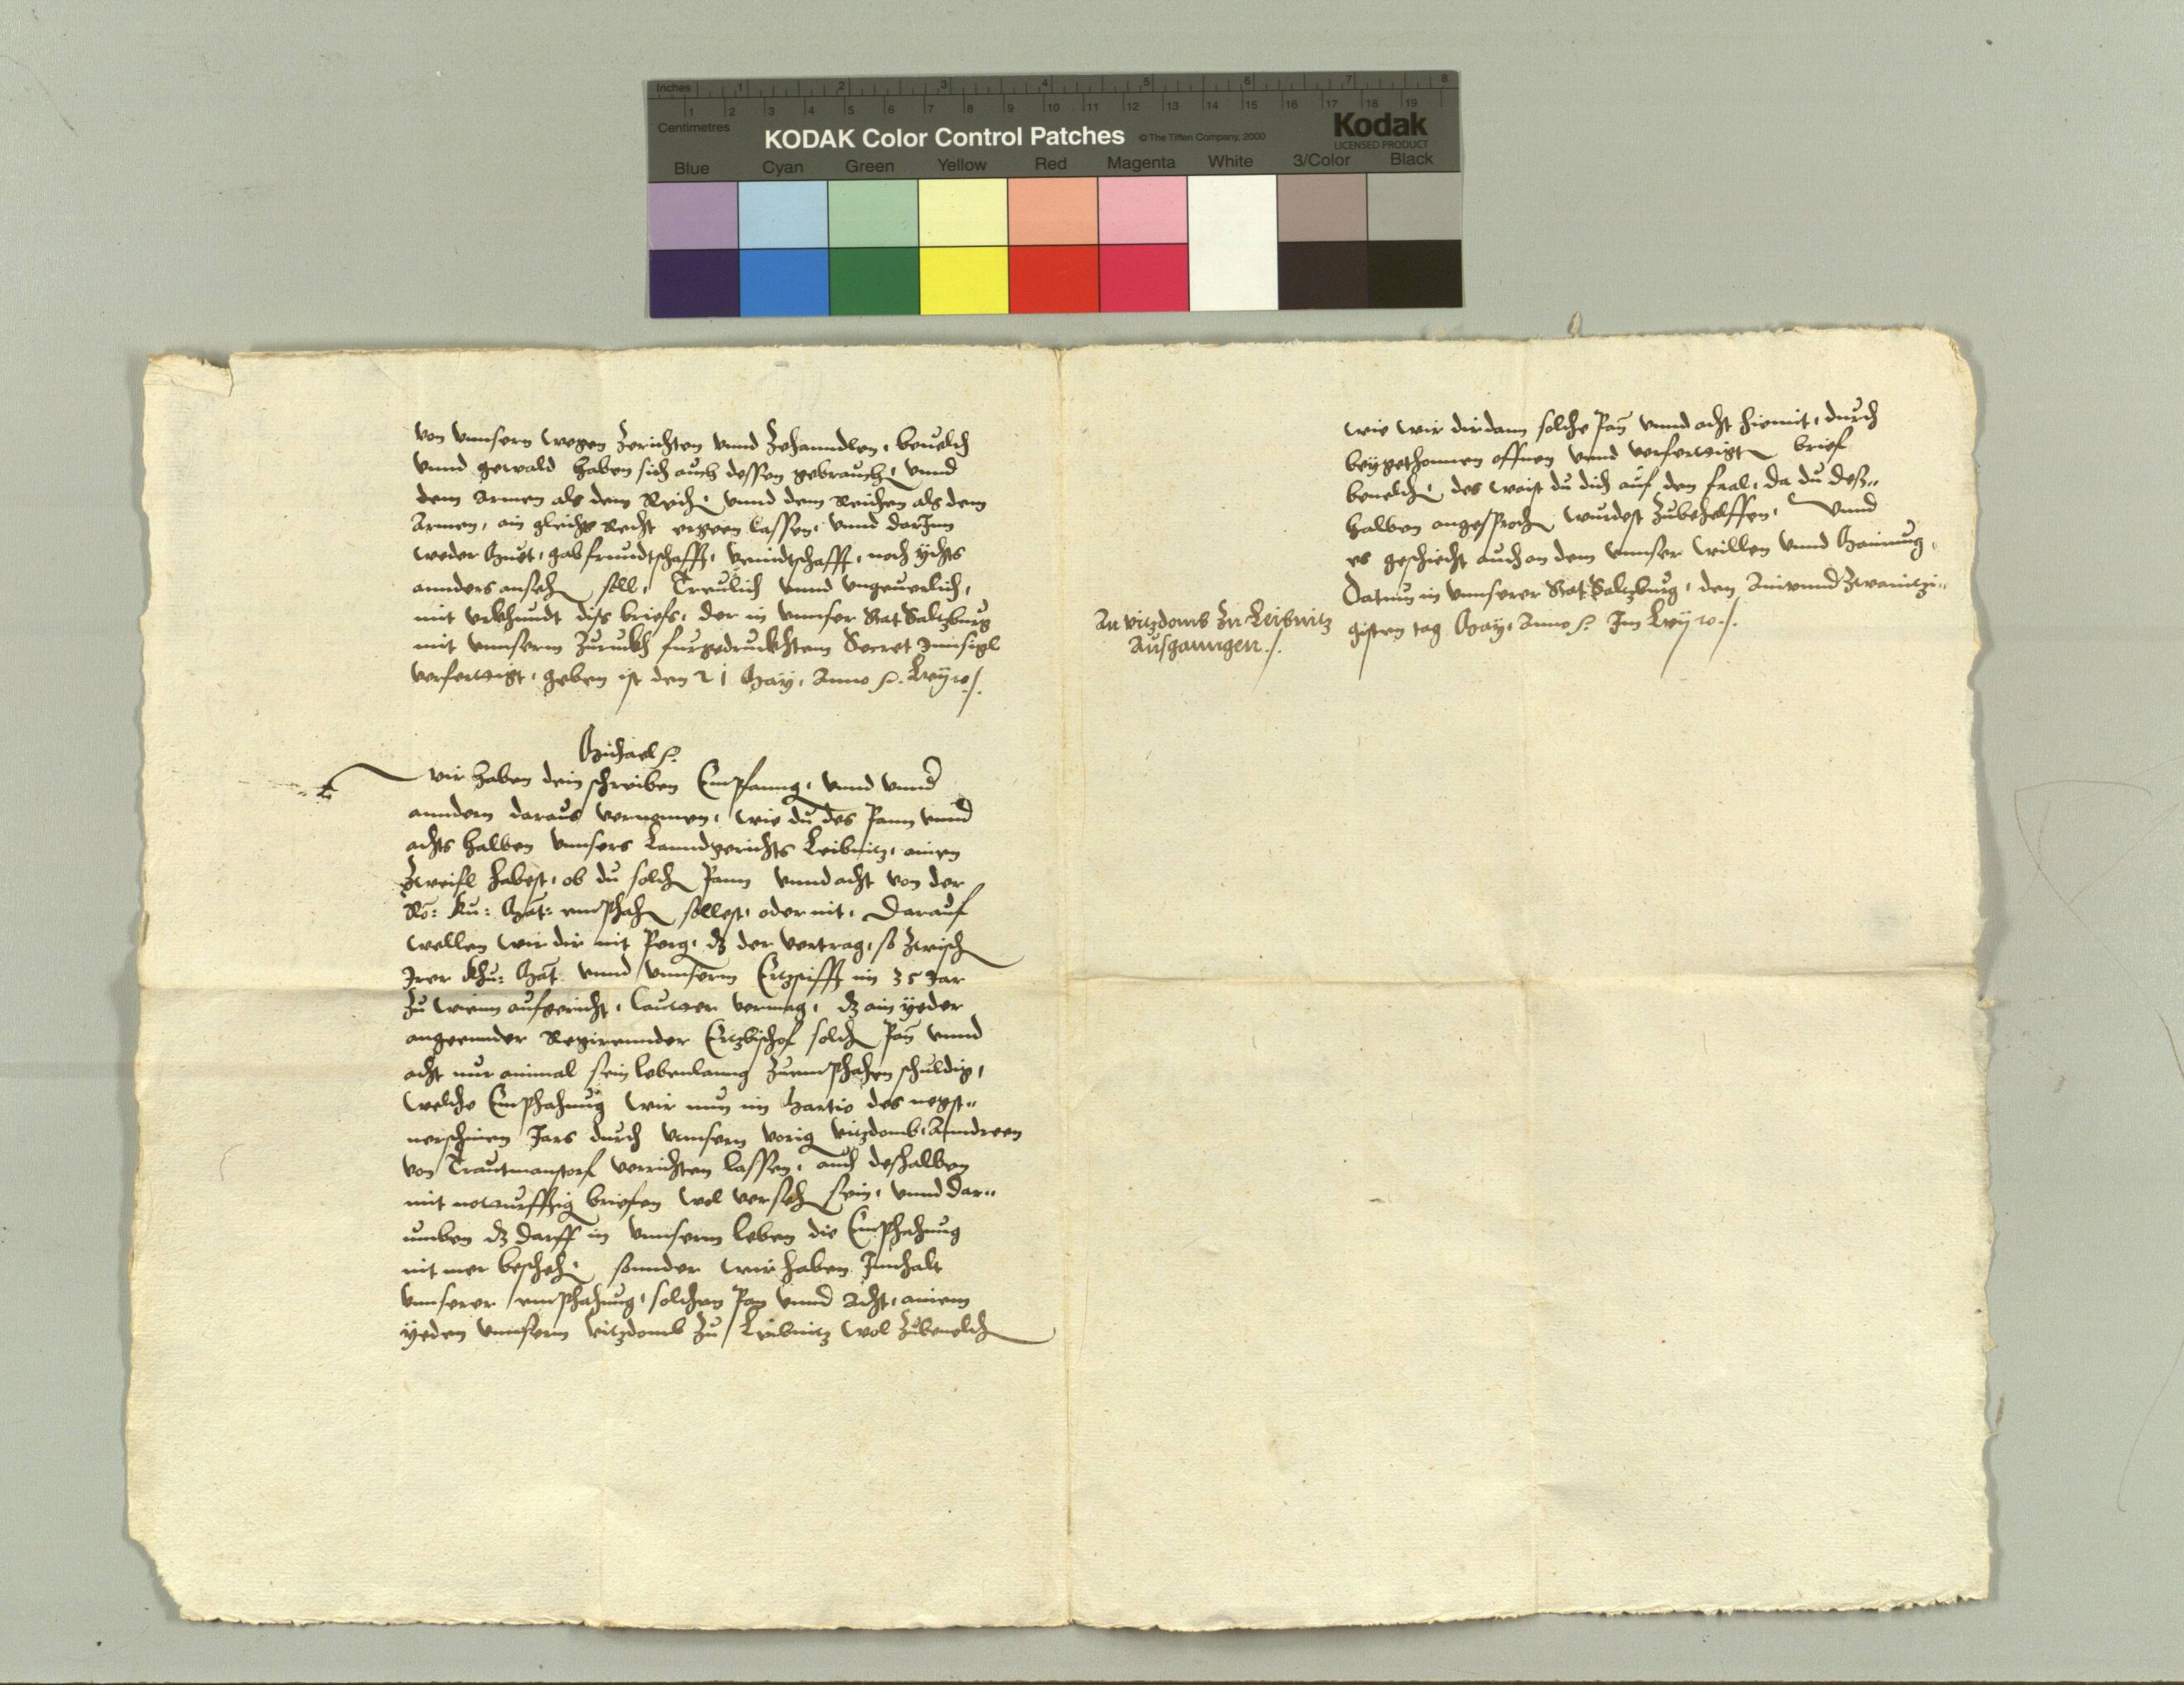 Inches 1 2 3 4 5 6 7 8
Centimetres 1 2 3 4 5 6 7 8 9 10 11 12 13 14 15 16 17 18 19
KODAK Color Control Patches © The Tiffen Company, 2000 Kodak
LICENSED PRODUCT
Blue Cyan Green Yellow Red Magenta White 3/Color Black
von vnnsern wegen Zerichten vnnd Zehanndlen, beuelch
vnnd gewald haben sich auch dessen gebrauch, vnnd
dem Armen als dem Reich, vnnd dem Reichen als dem
Armen, ain gleichs Recht ergeen lassen, vnnd darInn
weder Muet, gab freundtschafft, veindtschafft, noch ychts
annders anseh soll, Treulich vnnd vngeuerlich,
mit vrkhundt diss briefs, der in vnnser Stat Saltzburg
mit vnnserm Zuruckh furgedruckhtem Secret Innsigl
verfertigt, geben ist den 21 May, Anno
Michael
wir haben dein schreiben Empfanng, vnnd vnnd
anndern daraus vernomen, wie du des Pann vnnd
achts halben vnnsers Lanndgerichts Leibnitz, ainen
Zweifl habest, ob du solch Pann vnnd acht von der
Rö: Ku: Mat: emphah sollest, oder nit, Darauf
wellen wir dir nit Perg, dz der vertrag, so Zwisch
Irer Khu: Mat vnnd vnnserm Ertzstifft im 35 Jar
Zu wienn aufgericht, lautter vermag, dz ain yeder
angeennder Regirennder Ertzbischof solch Pan vnnd
acht nur ainmal sein lebenlanng Zuemphahen schuldig,
welche Emphahung wir nun im Martio des negst-
uerschinen Jars durch vnnsern vorig vitzdomb, Anndreen
von Trautmanstorf verrichten lassen, auch deshalben
mit notturfftig briefen wol verseh sein, vnnd dar-
umben dz darff in vnnserm leben die Emphahung
nit mer bescheh, sonnder wir haben Innhalt
vnnserer emphahung, solchen Pan vnnd Acht, ainem
yeden vnnserm vitzdomb Zu Leibnitz wol Zubeuelch
wie wir dir dann solche Pan vnnd acht hiemit, durch
beygethonnen offnen vnnd verfertigt brief
beuelch, des waist du dich auf den faal, da du deß-
halben angesproch wurdest Zubehelffen, Vnnd
es geschiecht auch an dem vnnser willen vnnd Mainung,
Datum in vnnserer Stat Saltzburg, den Ainvnndzwaintzi-
gisten tag May, Anno Im
An vitzdomb Zu Leibnitz
Ausganngen.